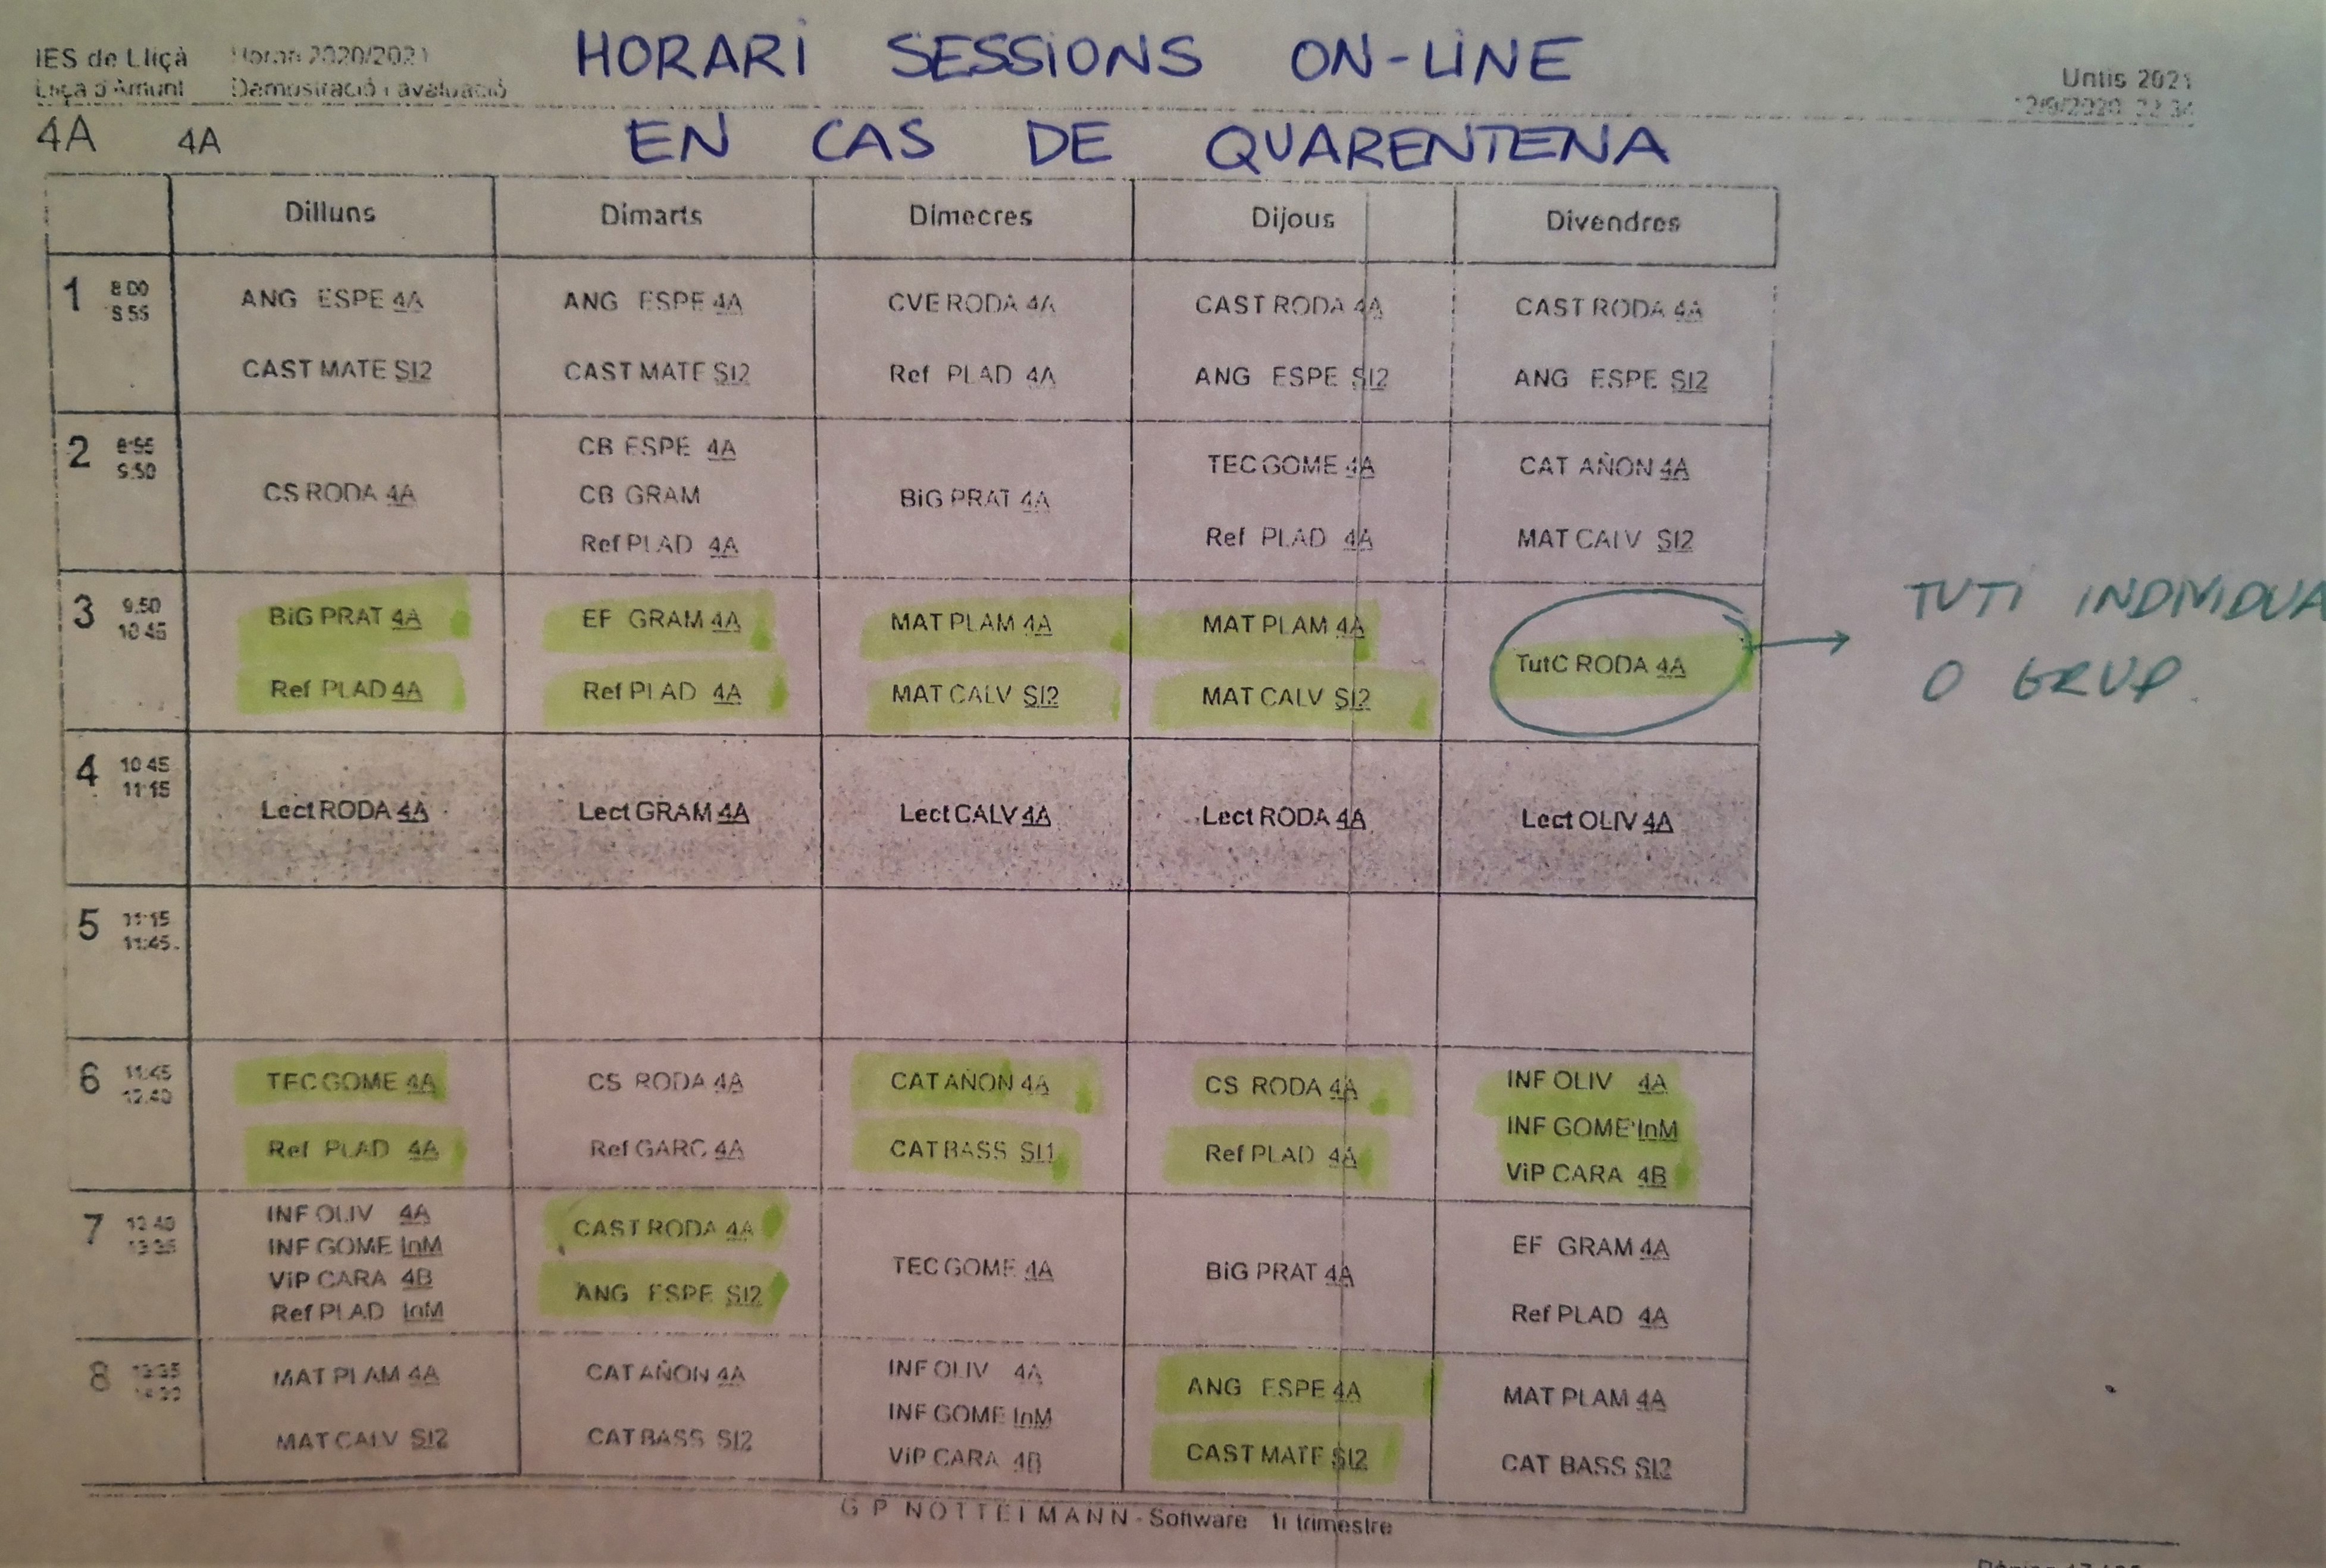 HORARI SESSIONS ON-LINE
IES de Lliçà Horari 2020/2021
Untis 2021
Lliçà d'Amunt Demostració i avaluació
12/9/2020 22:34
EN CAS DE QUARENTENA
4A 4A
Dilluns Dimarts Dimecres Dijous Divendres
1 8:00 8:55
ANG ESPE 4A ANG ESPE 4A CVE RODA 4A CAST RODA 4A CAST RODA 4A
CAST MATE SI2 CAST MATE SI2 Ref PLAD 4A ANG ESPE SI2 ANG ESPE SI2
2 8:55 9:50
CS RODA 4A
CB ESPE 4A
CB GRAM
Ref PLAD 4A
BiG PRAT 4A
TEC GOME 4A
Ref PLAD 4A
CAT AÑON 4A
MAT CALV SI2
3 9:50 10:45
BiG PRAT 4A EF GRAM 4A MAT PLAM 4A MAT PLAM 4A TutC RODA 4A
Ref PLAD 4A Ref PLAD 4A MAT CALV SI2 MAT CALV SI2
TUTI INDIVIDUA
O GRUP.
4 10:45 11:15
Lect RODA 4A Lect GRAM 4A Lect CALV 4A Lect RODA 4A Lect OLIV 4A
5 11:15 11:45
6 11:45 12:40
TEC GOME 4A
Ref PLAD 4A
CS RODA 4A
Ref GARC 4A
CAT AÑON 4A
CAT BASS SI1
CS RODA 4A
Ref PLAD 4A
INF OLIV 4A
INF GOME InM
ViP CARA 4B
7 12:40 13:35
INF OLIV 4A
INF GOME InM
ViP CARA 4B
Ref PLAD InM
CAST RODA 4A
ANG ESPE SI2
TEC GOME 4A
BiG PRAT 4A
EF GRAM 4A
Ref PLAD 4A
8 13:35 14:30
MAT PLAM 4A
MAT CALV SI2
CAT AÑON 4A
CAT BASS SI2
INF OLIV 4A
INF GOME InM
ViP CARA 4B
ANG ESPE 4A
CAST MATE SI2
MAT PLAM 4A
CAT BASS SI2
G P NOTTELMANN - Software 1r trimestre